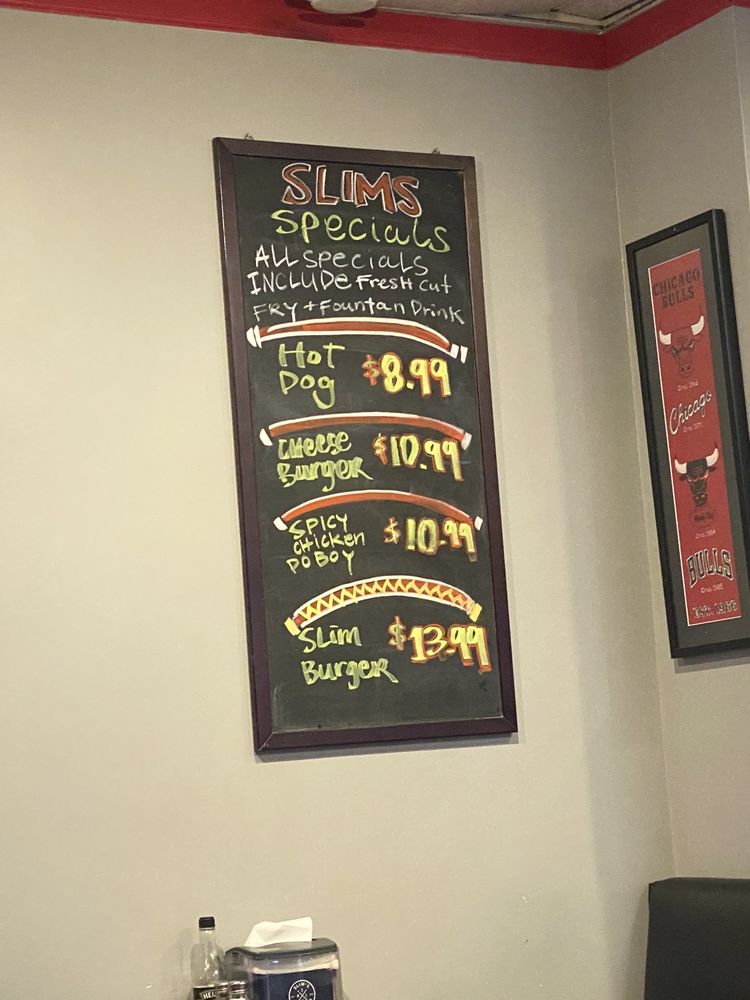 SLIMS
Specials
ALL specials
INCLUDe Fresh cut
FRY + Fountan Drink
Hot
Dog
$8.99
cheese
Burger
$10.99
SPICY
chicken
PO BOY
$10.99
SLIM
Burger
$13.99
CHICAGO
BULLS
Chicago
BULLS